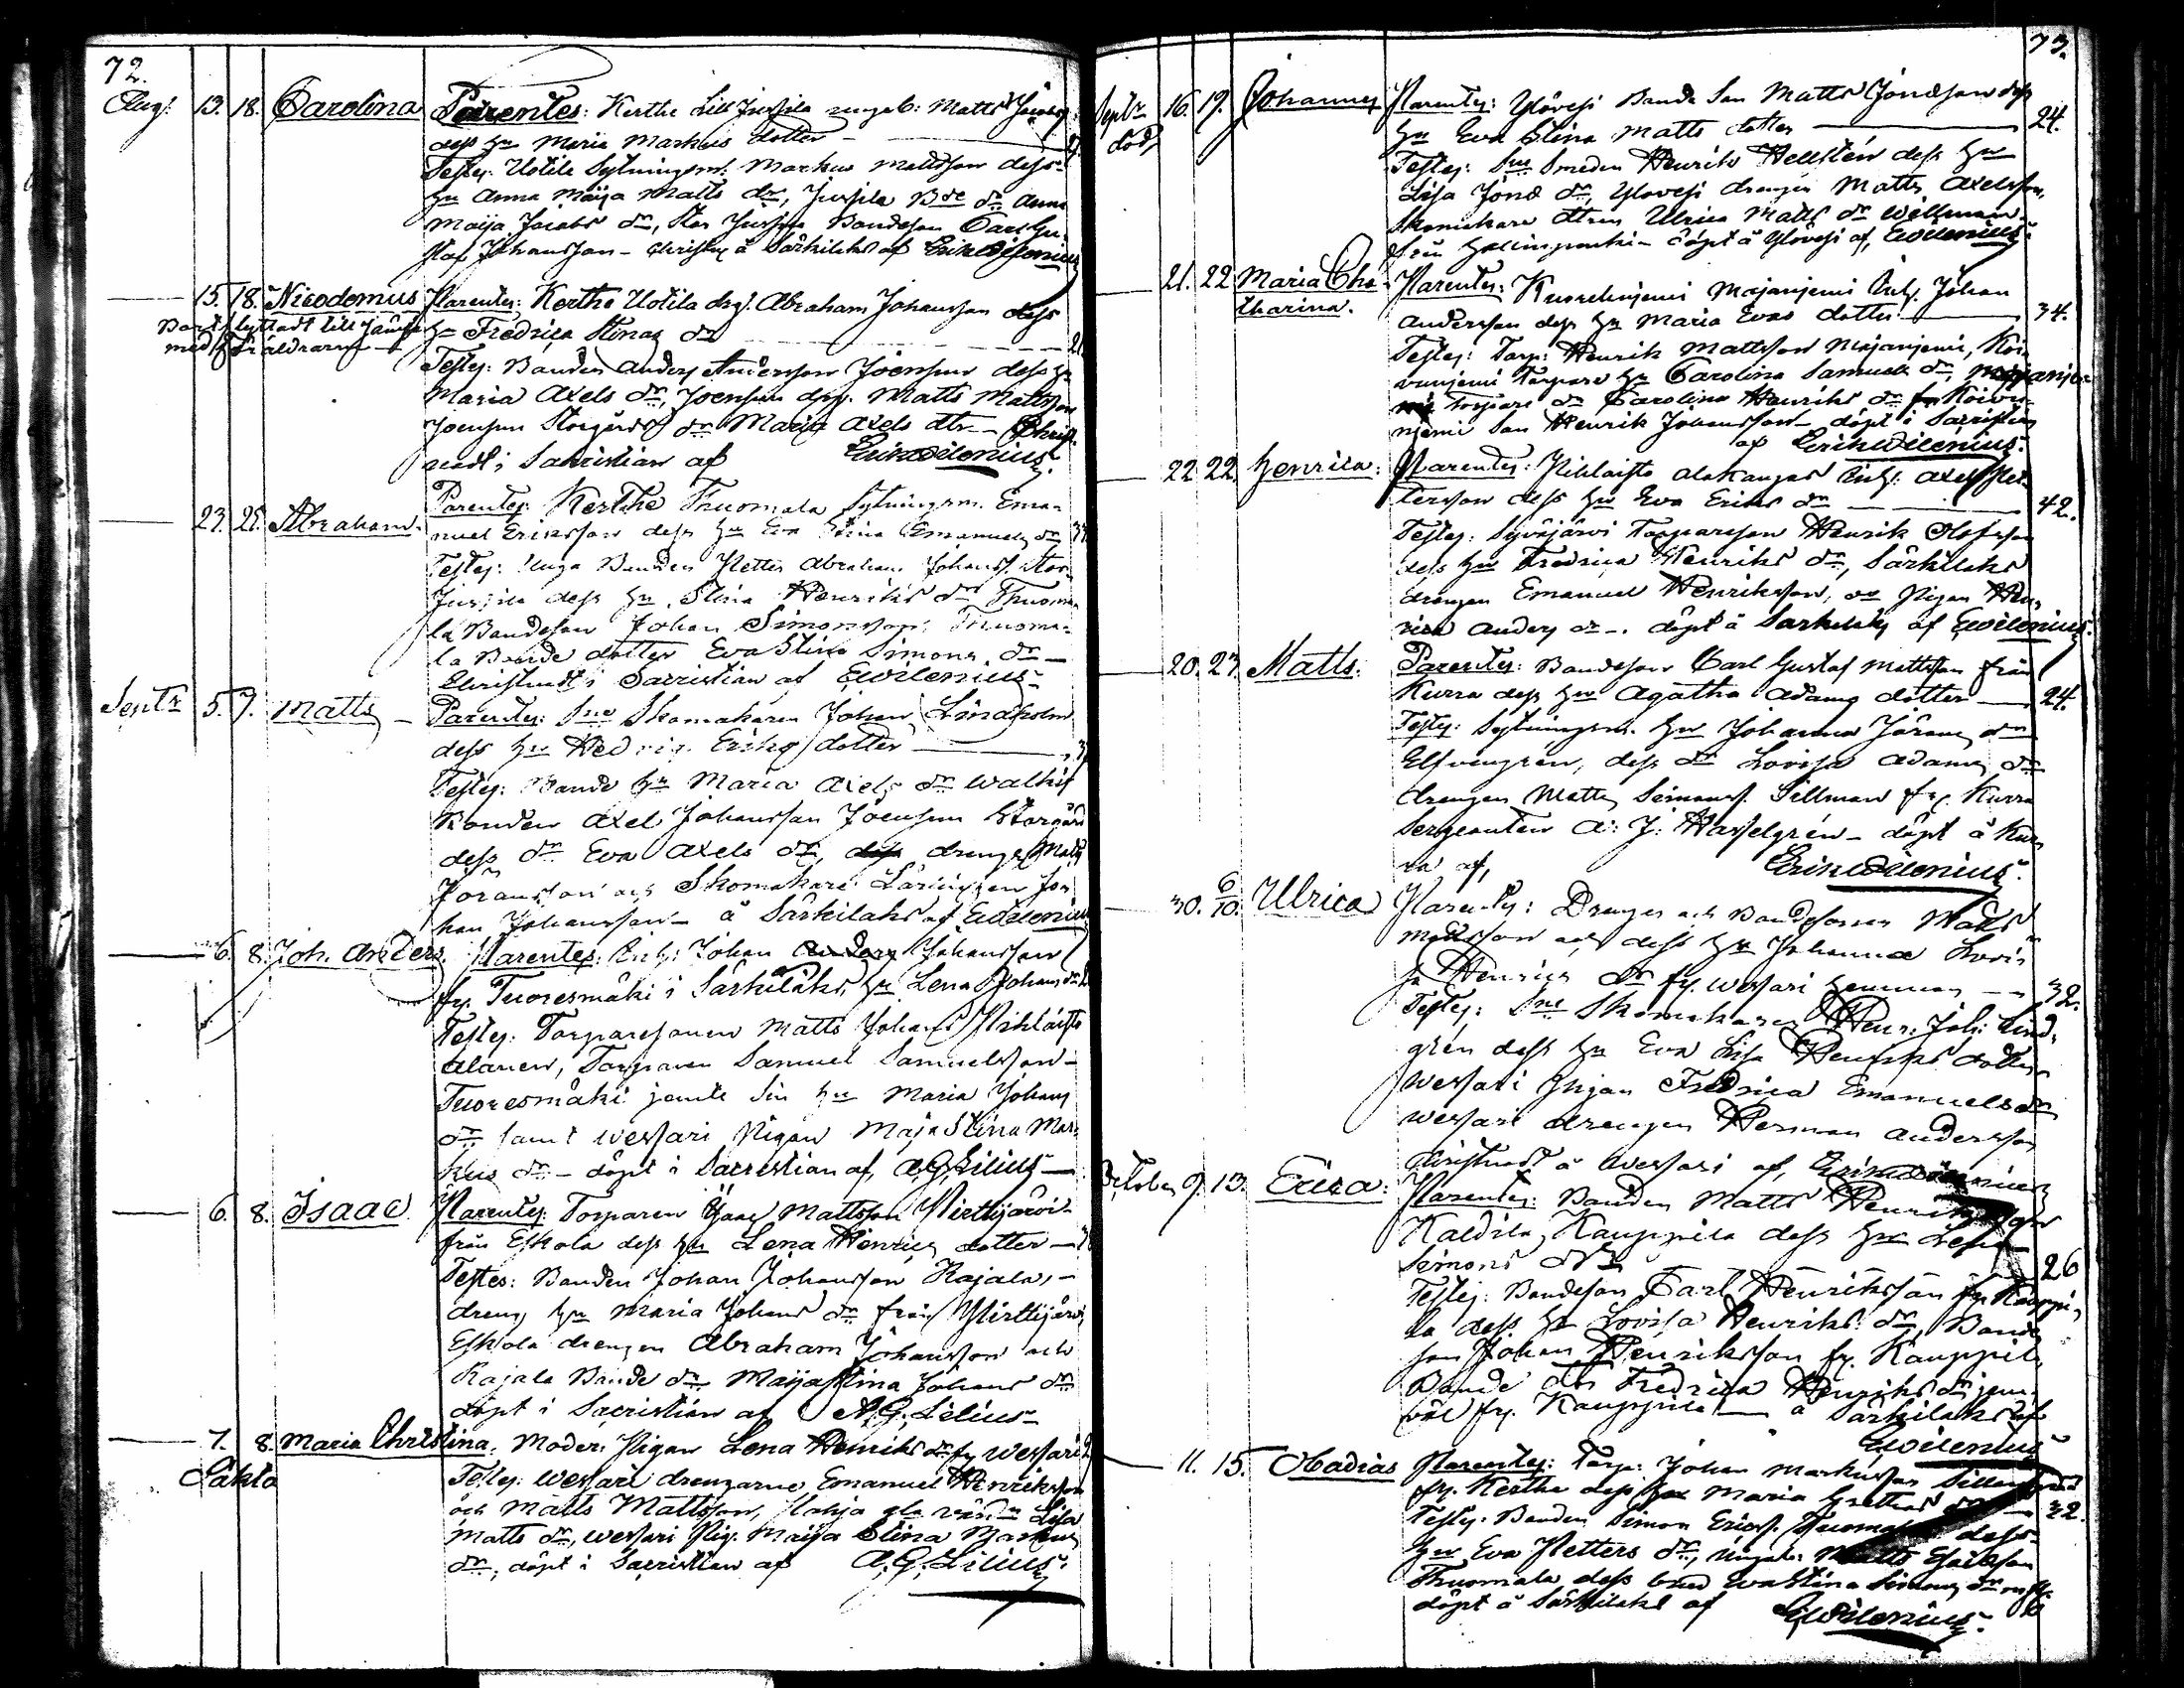 72.
Aug: 13. 18. Carolina Parentes: Kerthe Lill Jussila Matts
dess hu Maria Markus dotter
Testes: Uotila Sytningsm. Markus Mattsson dess
hu Anna Maija Matts dr, Jussila Bde dr Anna
Maija Jacobs dr, Stor Jussila Bondeson Carl Gu-
staf Johansson - christn å Särkilaks af Erik Wilenius
15. 18. Nicodemus Parentes: Kerthe Uotila drg. Abraham Johansson dess
Bort flyttadt till
med föräldrarne
hu Fredrica Stinas dr 21
Testes: Bonden Anders Andersson Joensuu dess hu
Maria Axels dr, Joensuu drg. Matts Mattsson
Joensuu Storgårds dr Maria Axels dtr - Christ-
nadt i Sacristian af Erik Wilenius.
23. 25. Abraham. Parentes: Kerthe Thuomala Sytningsm. Ema-
nuel Eriksson dess hu Eva Stina Emanuels dr
Testes: Unga Bonden Petter Abraham Johanss. Stor
Jussila dess hu Stina Henriks dr Thuoma-
la Bondeson Johan Simonsson, Thuoma-
la Bonde dotter Eva Stina Simons dr -
Christnadt i Sacristian af EWilenius
Septr 5. 7. Matts - Parentes: Sne Skomakaren Johan Lindholm
dess hu Hedvig Eriks dotter
Testes: Bonde hu Maria Axels dr
Bonden Axel Johansson Joensuu Storgård
dess dr Eva Axels dr, dess drengen Matts
Jöransson och Skomakare Läringen Jo-
han Johansson - å Särkilaks af EWilenius
6. 8. Joh. Anders Parentes: Inh: Johan Anders Johansson
fr. Tuoresmäki i Särkilaks, hu Lena Johans dr
Testes: Torparesonen Matts Johans Pihlaisto
Alanen, Torparen Samuel Samuelsson -
Tuoresmäki jemte sin hu Maria Johans
dr samt Wessari Pigan Maja Stina Mar-
kus dr - döpt i Sacristian af, A.G. Lilius -
6. 8. Isaac. Parentes: Torparen Isaac Mattsson Pirttijärvi
från Eskola dess hu Lena Henrics dotter -
Testes: Bonden Johan Johansson Rajala, -
dreng hu Maria Johans dr från Pirttijärvi,
Eskola drengen Abraham Johansson och
Rajala Bonde dr Maija Stina Johans dr
döpt i Sacristian af A.G. Lilius -
7. 8. Maria Christina. Moder: Pigan Lena Henriks dr fr Wessari
Oäkta
Testes: Wessari drengarne Emanuel Henriksson
och Matts Mattsson, Lisa
Matts dr, Wessari Pig. Maija Stina Markus
dr, döpt i Sacristian af A.G. Lilius.
73.
Septr 16. 19. Johannes Parentes: Ylövesi Bonde Son Matts Jonasson dess
död
hu Eva Stina Matts dotter 24.
Testes: Sne Smeden Henrik Hellstén dess hu
Lisa Jonas dr, Ylövesi drengen Matts Axelsson,
Skomakare dtren Ulrica Matts dr Willman
från - döpt å Ylövesi af, EWilenius
21. 22 Maria Cha-
tharina.
Parentes: Majanjemi Inh. Johan
Andersson dess hu Maria Evas dotter 34.
Testes: Torp: Henrik Mattsson Majanjemi, Koi-
vunjemi Torpare hu Carolina Samuels dr, Majanje-
mi Torpare dr Carolina Henriks dr fr Koivu-
njemi Son Henrik Johansson - döpt i Sacristian
af Erik Wilenius.
22 22. Henrica: Parentes: Pihlaisto Alakangas Inh: Axel Pet-
tersson dess hu Eva Eriks dr 42.
Testes: Syväjärvi Torparesson Henrik Olofsson
dess hu Fredrica Henriks dr, Särkilaks
drengen Emanuel Henriksson, oc Pigan Hen-
rica Anders dr -. döpt å Särkilaks af EWilenius.
20. 23. Matts. Parentes: Bondeson Carl Gustaf Mattsson från
Kurra dess hu Agatha Adams dotter - 24.
Testes: Sytningsm. hu Johanna Jörans dr
Elfvengren, dess dr Lovisa Adams dr
drengen Matts Simonss. Sillman fr. Kurra
Sergeanten A: J: Hasselgrén - döpt å Kur-
ra af, Erik Wilenius.
30. 6/10. Ulrica Parentes: Drengen och Bondesonen Matts
Mattsson och dess hu Johanna Lovi-
sa Henrics dr fr. Wessari hemman -- 32.
Testes: Sne Skomakaren Henr: Joh: Lind-
grén dess hu Eva Lisa Henriks dotter
Wessari Pigan Fredrica Emanuels dr
Wessari drengen Herman Andersson
Christnadt å Wessari af, Erik Wilenius
October 9. 13. Erica: Parentes: Bonden Matts Henriksson
Kaldila Kauppila dess hu Lena
Simons dr 26
Testes: Bondeson Carl Henriksson fr. Kauppi-
la dess hu Lovisa Henriks dr, Bonde
son Johan Henriksson fr. Kauppila
Bonde dtr Fredrica Henriks dr jem-
väl fr. Kauppila - å Särkilaks af
EWilenius
11. 15. Obadias Parentes: Torp: Johan Markusson
fr. Kerthe dess hu Maria Grethas dr 32.
Testes: Bonden Simon Ericss. Thuomala dess
hu Eva Petters dr, Ungk: Matts
Thuomala dess brud Eva Stina Simons dr
döpt å Särkilaks af EWilenius.